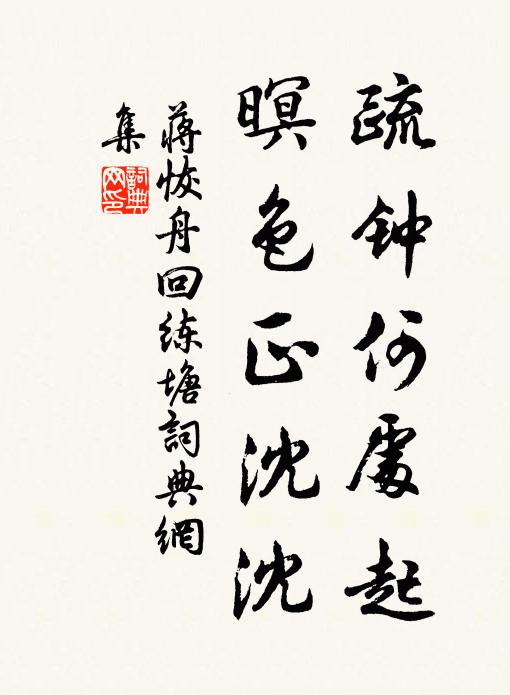 疏钟何處起
暝色正沈沈
蒋恢舟回练塘詞典網
集
詞典
网印